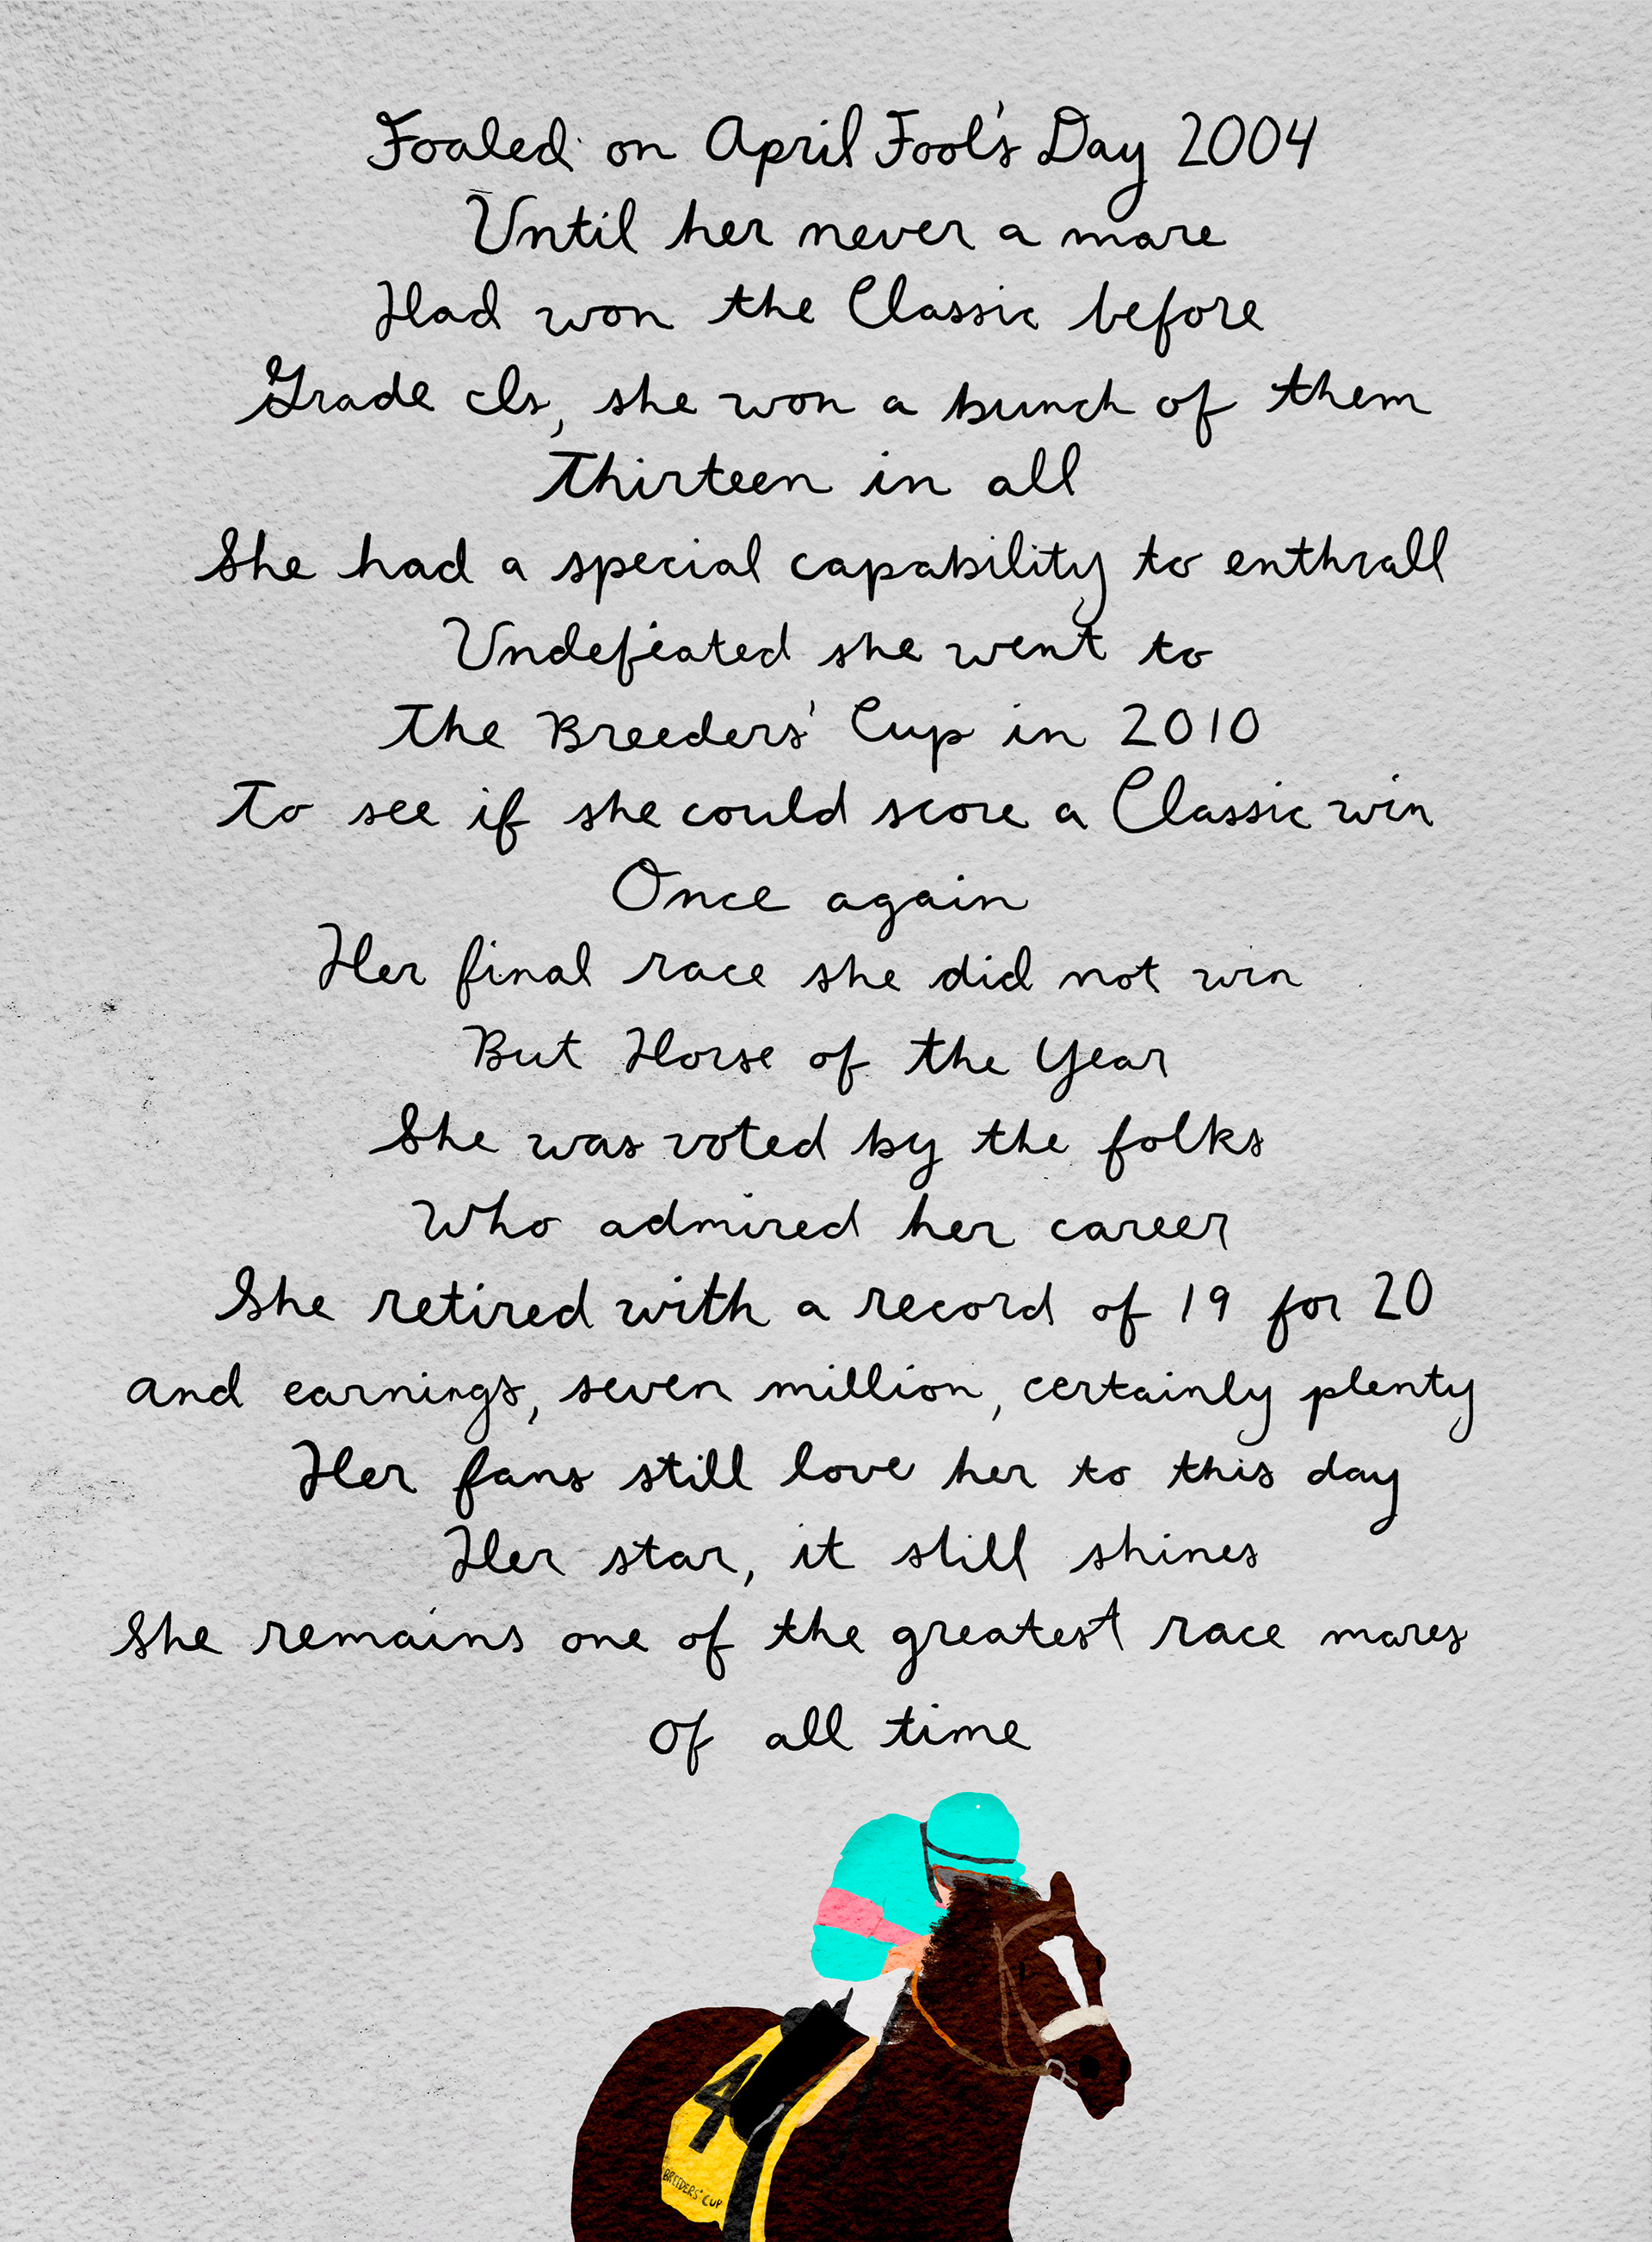 Foaled on April Fool's Day 2004
Until her never a mare
Had won the Classic before
Grade Is, she won a bunch of them
Thirteen in all
She had a special capability to enthrall
Undefeated she went to
The Breeders' Cup in 2010
To see if she could score a Classic win
Once again
Her final race she did not win
But Horse of the Year
She was voted by the folks
Who admired her career
She retired with a record of 19 for 20
And earnings, seven million, certainly plenty
Her fans still love her to this day
Her star, it still shines
She remains one of the greatest race mares
Of all time
4
BREEDERS' CUP